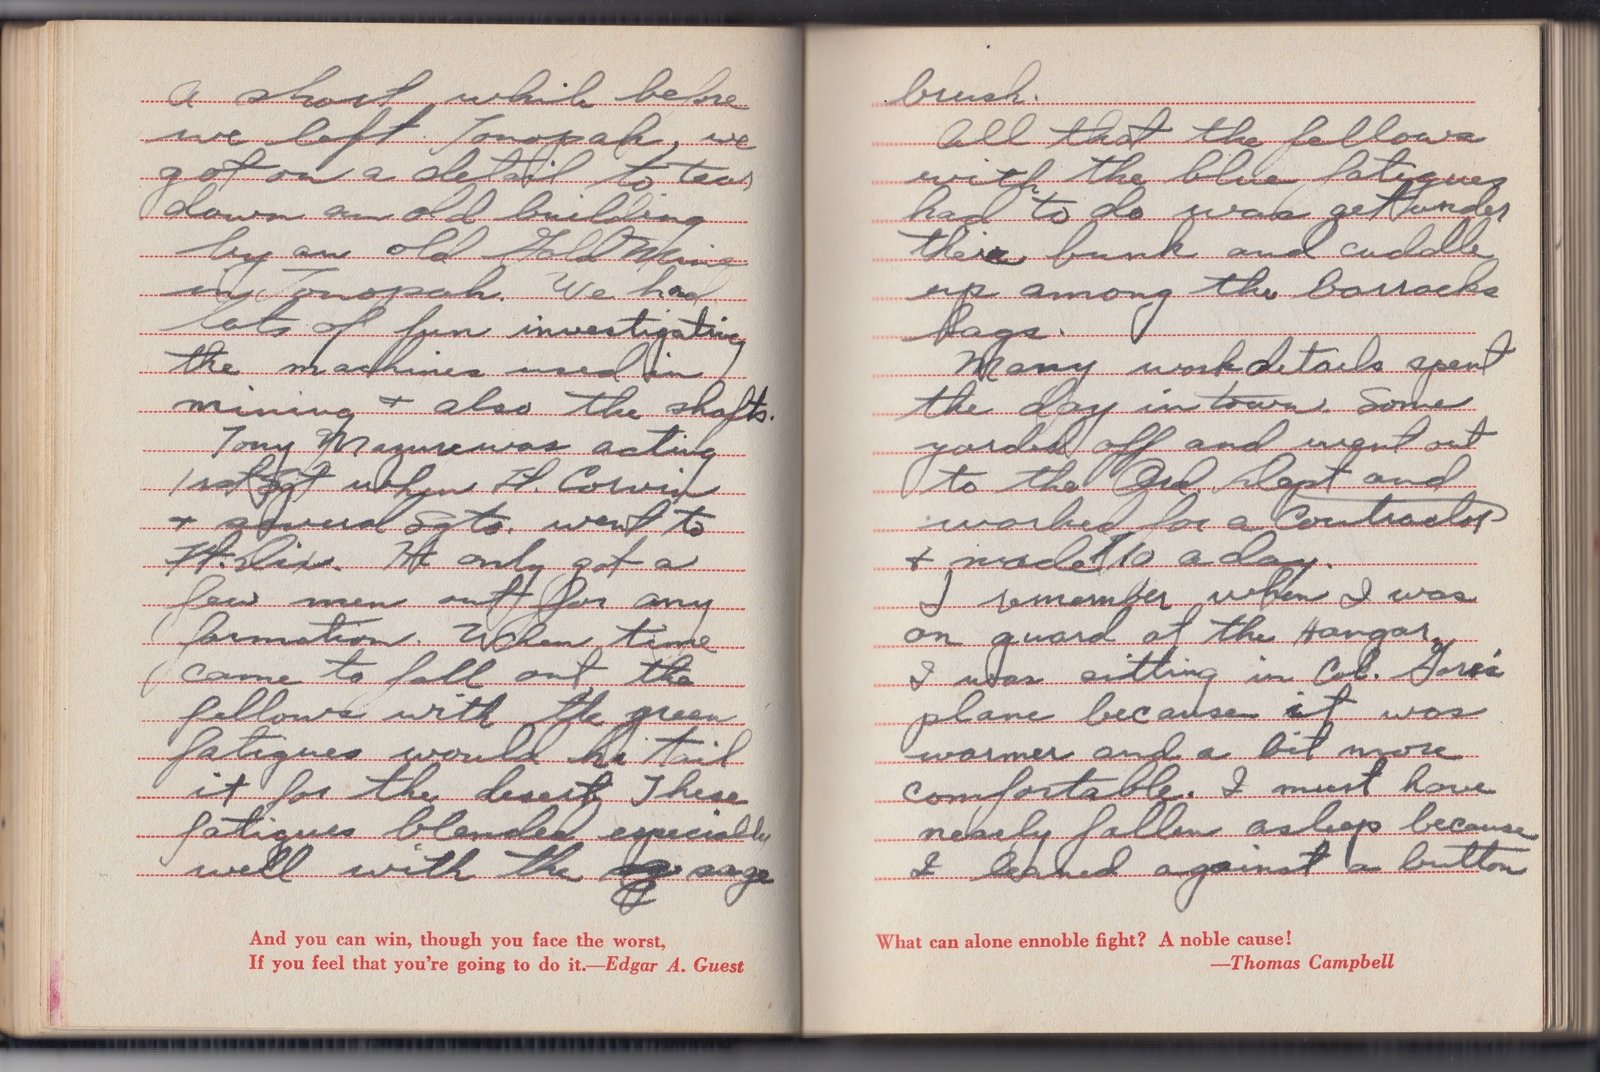 A short while before
we left Tonopah, we
got on a detail to tear
down an old building
by an old Gold Mine
in Tonopah. We had
lots of fun investigating
the machines used in
mining + also the shafts.
Tony Mazure was acting
1st Sgt when Lt. Corwin
+ several Sgts. went to
Ft. Dix. He only got a
few men out for any
formation. When time
came to fall out the
fellows with the green
fatigues would hi tail
it for the desert. These
fatigues blended especially
well with the sage
And you can win, though you face the worst,
If you feel that you're going to do it.—Edgar A. Guest
brush.
All that the fellows
with the blue fatigues
had to do was get under
their bunk and cuddle
up among the barracks
bags.
Many work details spent
the day in town. Some
yarded off and went out
to the and
worked for a Contractor
+ made $10 a day.
I remember when I was
on guard at the Hangar,
I was sitting in Col.
plane because it was
warmer and a bit more
comfortable. I must have
nearly fallen asleep because
I leaned against a button
What can alone ennoble fight? A noble cause!
—Thomas Campbell